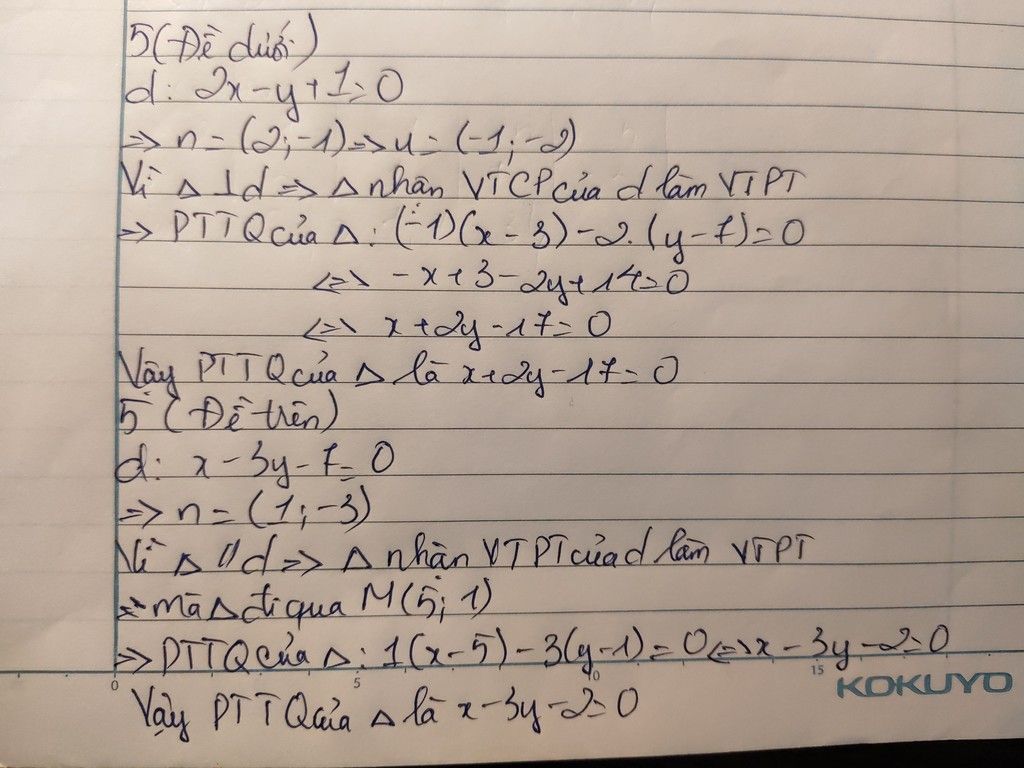 5 (Đề dưới)
d: 2x - y + 1 = 0
=> n = (2; -1) => u = (-1; -2)
Vì Δ ⊥ d => Δ nhận VTCP của d làm VTPT
=> PTTQ của Δ: (-1)(x - 3) - 2.(y - 7) = 0
<=> -x + 3 - 2y + 14 = 0
<=> x + 2y - 17 = 0
Vậy PTTQ của Δ là x + 2y - 17 = 0
5 (Đề trên)
d: x - 3y - 7 = 0
=> n = (1; -3)
Vì Δ // d => Δ nhận VTPT của d làm VTPT
mà Δ đi qua M(5; 1)
=> PTTQ của Δ: 1(x - 5) - 3(y - 1) = 0 <=> x - 3y - 2 = 0
0 5 10 15
KOKUYO
Vậy PTTQ của Δ là x - 3y - 2 = 0